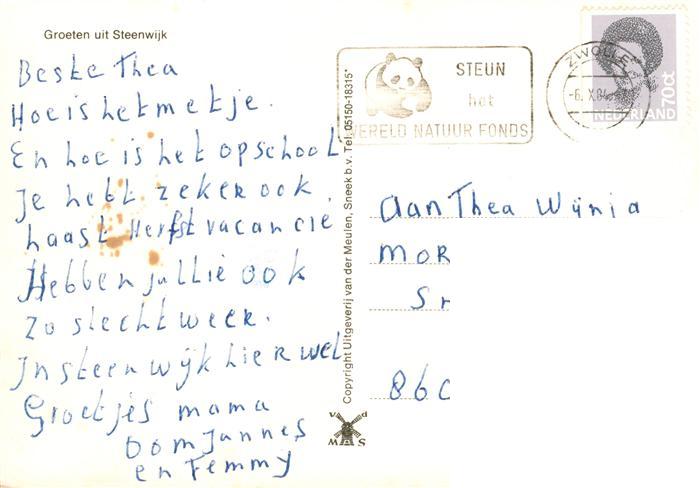 Groeten uit Steenwijk
Beste Thea
Hoe is het met je.
En hoe is het op school
Je hebt zeker ook
haast Herfst vacancie
Hebben jullie ook
Zo slecht weer.
In steenwijk hier wel
Groetjes mama
oom Jannes
en Femmy
Copyright Uitgeverij van der Meulen, Sneek b.v. Tel. 05150-18315*
v d
MAS
STEUN
het
WERELD NATUUR FONDS
ZWOLLE
-6.X.84
NEDERLAND 70ct
aan Thea Wijnia
MOR
Sr
86C